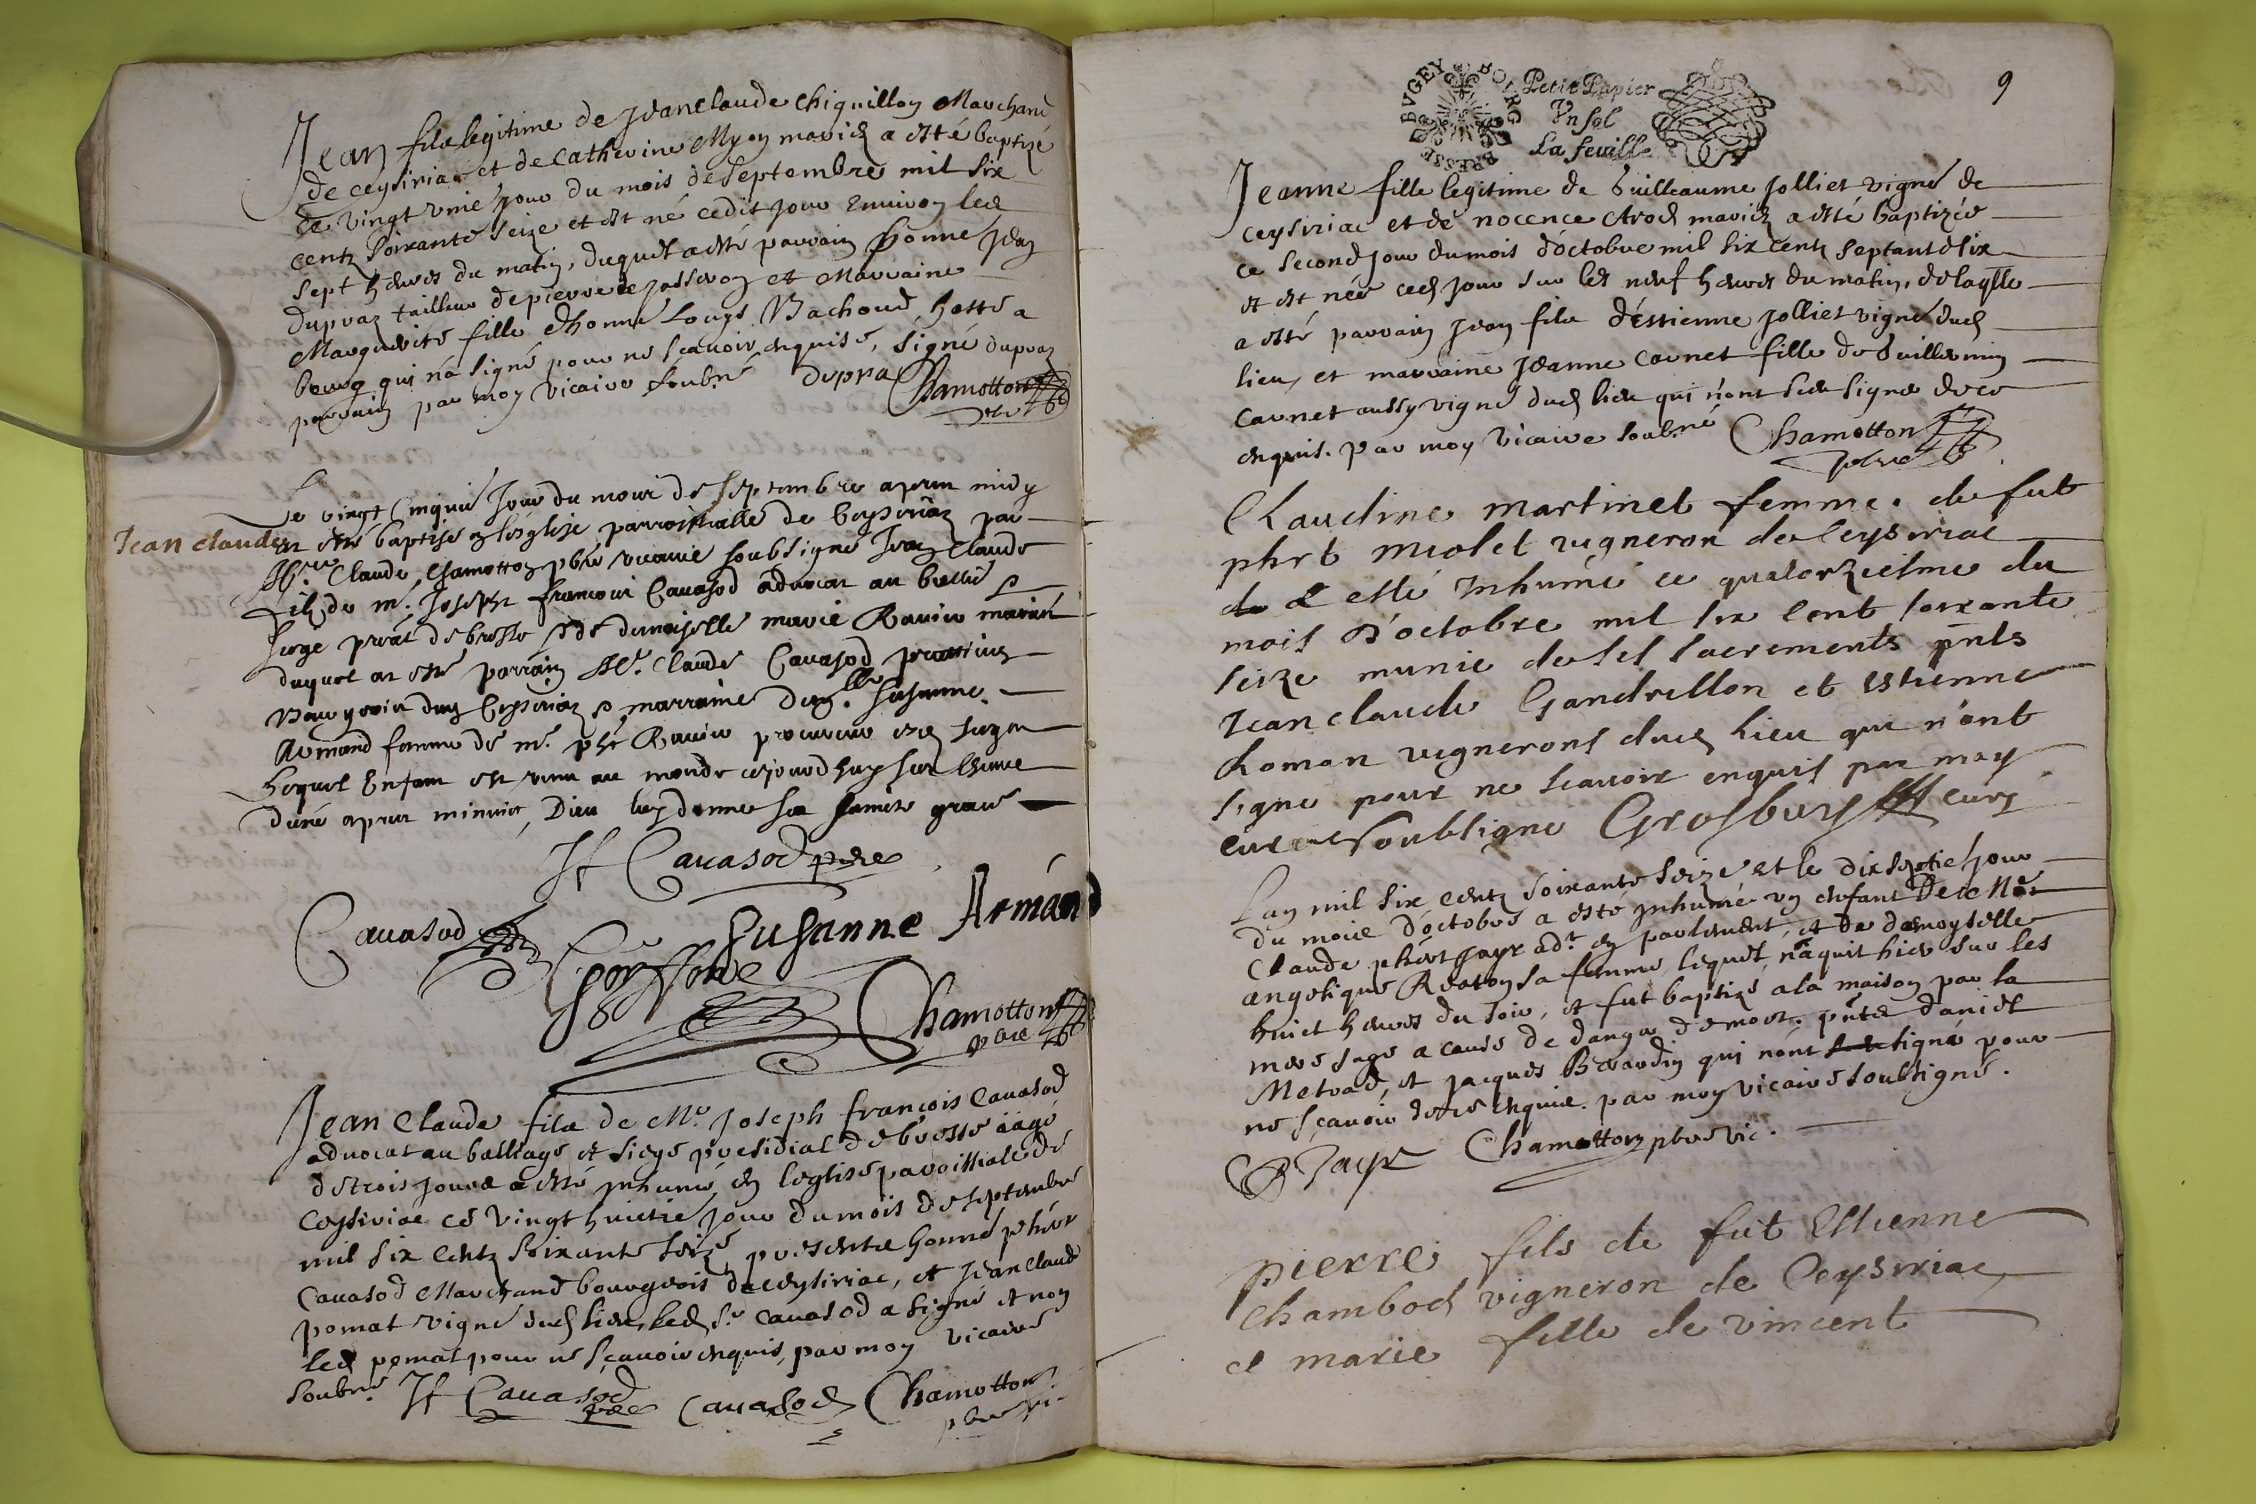 Jean fils legitime de Jean Claude Chiquillon Marchand
de ceysiriac et de Catherine Myon mariez a esté baptizé
ce vingt vnié jour du mois de septembre mil six
centz soixante seize et est né cedit jour enuiron les
sept heures du matin, duquel a esté parrain honné Jean
dupraz tailleur de pierre de Jasseron et Marraine
Marguerite fille d'honné Louys Bachoud, hoste a
bourg qui n'a signé pour ne sçauoir enquise, signé dupraz
parrain par moy vicaire soubné dupra Chamotton
pbre
Le vingt cinquié Jour du mois de septembre apres midy
Jean claude
a esté baptisé en leglise parroissialle de Ceysiria par
Mre Claude Chamotton pbre vicaire soubsigné Jean Claude
filz de mr. Joseph françois Cauasod aduocat au balliage
siege preal de bresse et de damoiselle marie Rauier mariés
duquel a esté parrain Mr. Claude Cauasod praticien
bourgeois dud Ceysiria et marraine damlle Susanne
Armand femme de mr. phe Rauier procureur esd sieges
lequel Enfant est venu au monde cejourdhuy sur lheure
dune apres minuict, Dieu luy donne sa sainte grace
Jf Cauasod pere
Cauasod Susanne Armánd
Chamotton
pbre
Jean Claude fils de Mr. Joseph françois Cauasod
aduocat au balliage et siege presidial de bresse aagé
de trois jours a esté inhumé en leglise paroissiale de
Ceysiriac ce vingt huictié jour du mois de septembre
mil six centz soixante seize, presentz honné phért
Cauasod Marchand bourgeois de ceysiriac, et Jean Claude
pomat vigné dud lieu, led Sr. Cauasod a signé et non
led pomat pour ne sçauoir enquis, par moy vicaire
soubné. Jf Cauasod Cauasod Chamotton
pere pbre vic.
9
BVGEY BOURG BRESSE
Petit Papier
Vn sol
La feuille
Jeanne fille legitime de Guilleaume Jolliet vigné de
ceysiriac et de nocence Arod mariez a esté baptizée
ce second jour du mois d'octobre mil six centz septante six
et est née ced jour sur les neuf heures du matin, de laqlle
a esté parrain Jean fils d'éstienne Jolliet vigné dud
lieu, et marraine Jeanne Carnet fille de Guillermin
Carnet aussy vigné dud lieu qui n'ont sceu signer de ce
enquis. par moy vicaire soubné Chamotton
pbre
Claudine martinet femme de fut
phrt miolet vigneron de Ceysiriac
a esté Inhumé ce quatorziesme du
mois D'octobre mil six cent soixante
seize munie de ses sacrements pnts
Jean claude Gandrillon et Estienne
Roman vignerons dud lieu qui n'ont
signé pour ne scauoir enquis par moy
curé soubsigne Grosbuys curé
Lan mil six centz soixante seize et le dix septie jour
du mois d'octobre a esté inhumé vn enfant De Me
Claude phért Jayr adt. en parlement, et de damoyselle
angelique Reaton sa femme, lequel naquit hier sur les
huict heures du soir, et fut baptizé a la maison par la
mere sage a cause de danger de mort. pnts daniel
Metrad, et Jacques Berardin qui nont signé pour
ne sçauoir de ce enquis. par moy vicaire soubsigné.
Jayr Chamotton pbre vic.
pierre fils de fut Estienne
Chambod vigneron de Ceysiriac
et marie fille de vincent